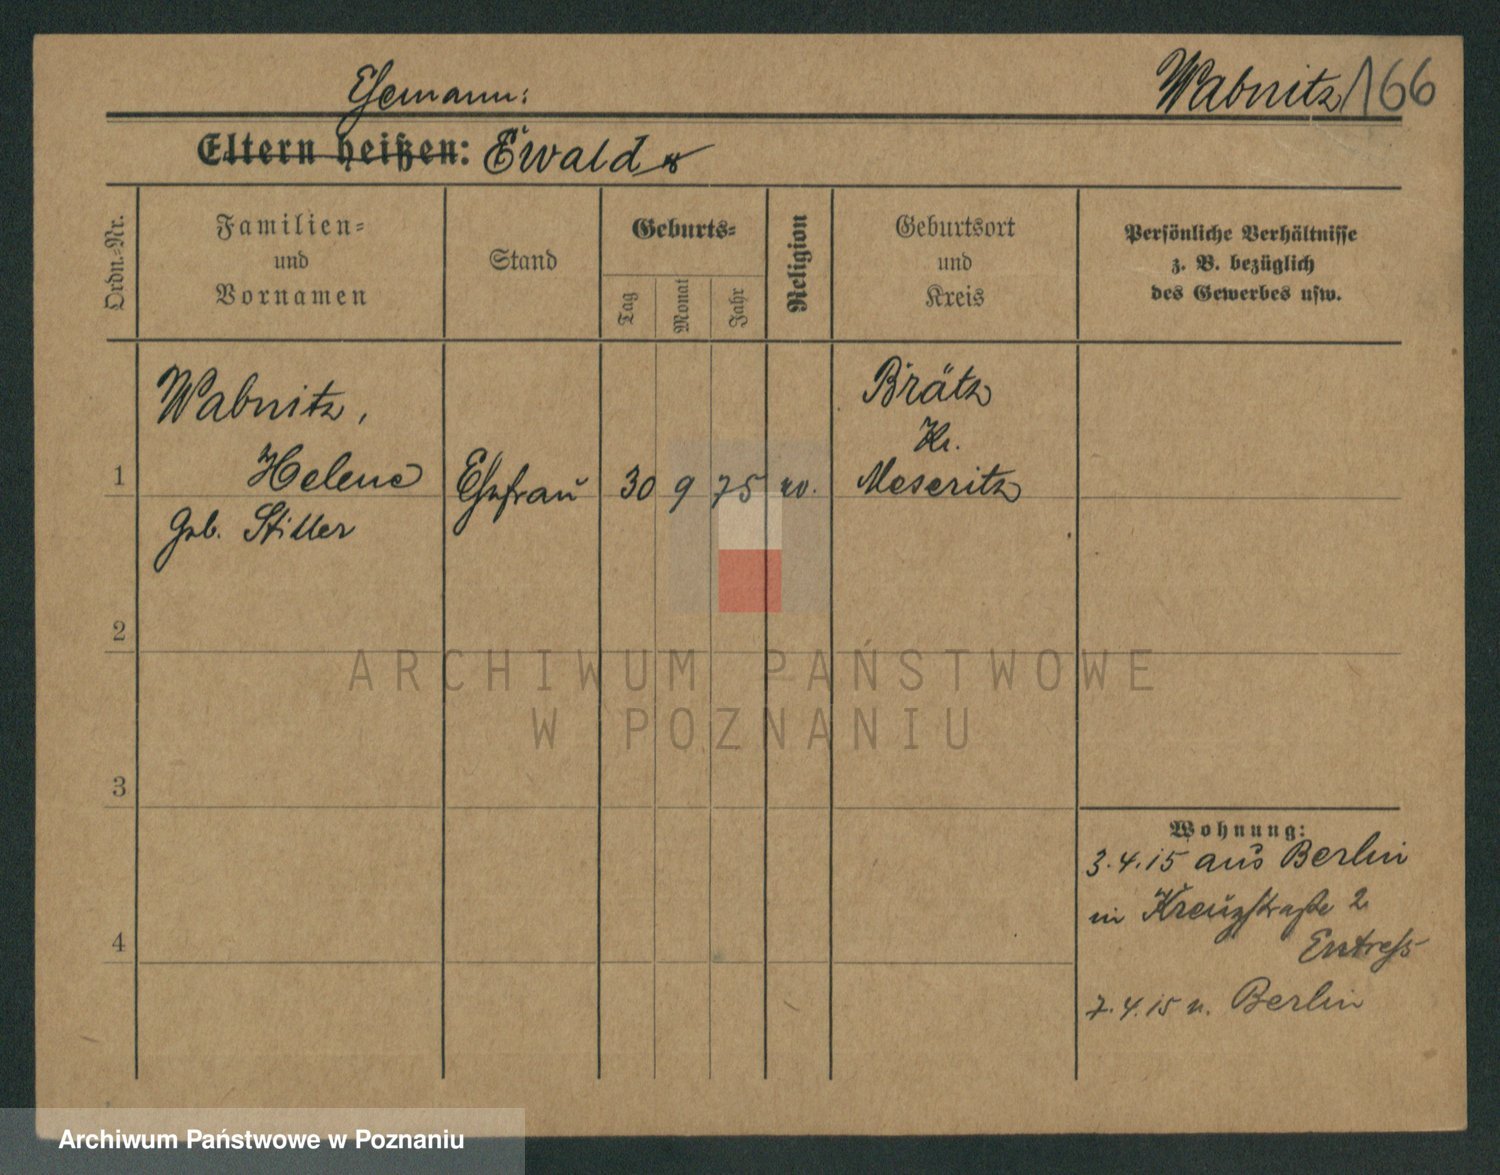 Ehemann:
Wabnitz 166
Eltern heißen: Ewald
Ordn.-Nr.
Familien-
und
Vornamen
Stand
Geburts-
Tag
Monat
Jahr
Religion
Geburtsort
und
Kreis
Persönliche Verhältnisse
z. B. bezüglich
des Gewerbes usw.
1
Wabnitz,
Helene
geb. Stiller
Ehefrau
30
9
75
ev.
Brätz
Kr.
Meseritz
2
3
4
Wohnung:
3.4.15 aus Berlin
in Kreuzstraße 2
Entreß
7.4.15 n. Berlin
ARCHIWUM PAŃSTWOWE
W POZNANIU
Archiwum Państwowe w Poznaniu